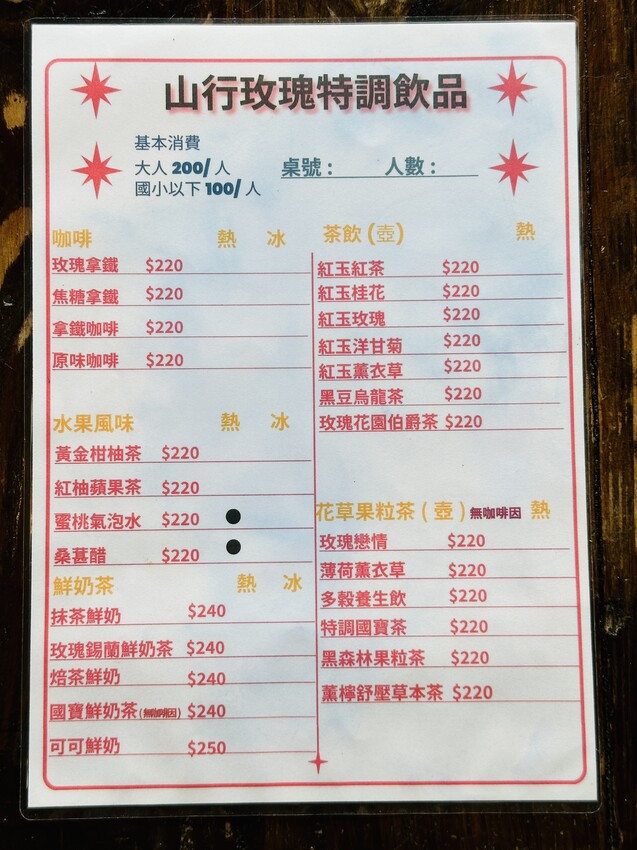 山行玫瑰特調飲品
基本消費
大人 200/ 人
國小以下 100/ 人
桌號： 人數：
咖啡 熱 冰
玫瑰拿鐵 $220
焦糖拿鐵 $220
拿鐵咖啡 $220
原味咖啡 $220
水果風味 熱 冰
黃金柑柚茶 $220
紅柚蘋果茶 $220
蜜桃氣泡水 $220
桑葚醋 $220
鮮奶茶 熱 冰
抹茶鮮奶 $240
玫瑰錫蘭鮮奶茶 $240
焙茶鮮奶 $240
國寶鮮奶茶(無咖啡因) $240
可可鮮奶 $250
茶飲(壺) 熱
紅玉紅茶 $220
紅玉桂花 $220
紅玉玫瑰 $220
紅玉洋甘菊 $220
紅玉薰衣草 $220
黑豆烏龍茶 $220
玫瑰花園伯爵茶 $220
花草果粒茶(壺)無咖啡因 熱
玫瑰戀情 $220
薄荷薰衣草 $220
多穀養生飲 $220
特調國寶茶 $220
黑森林果粒茶 $220
薰檸舒壓草本茶 $220